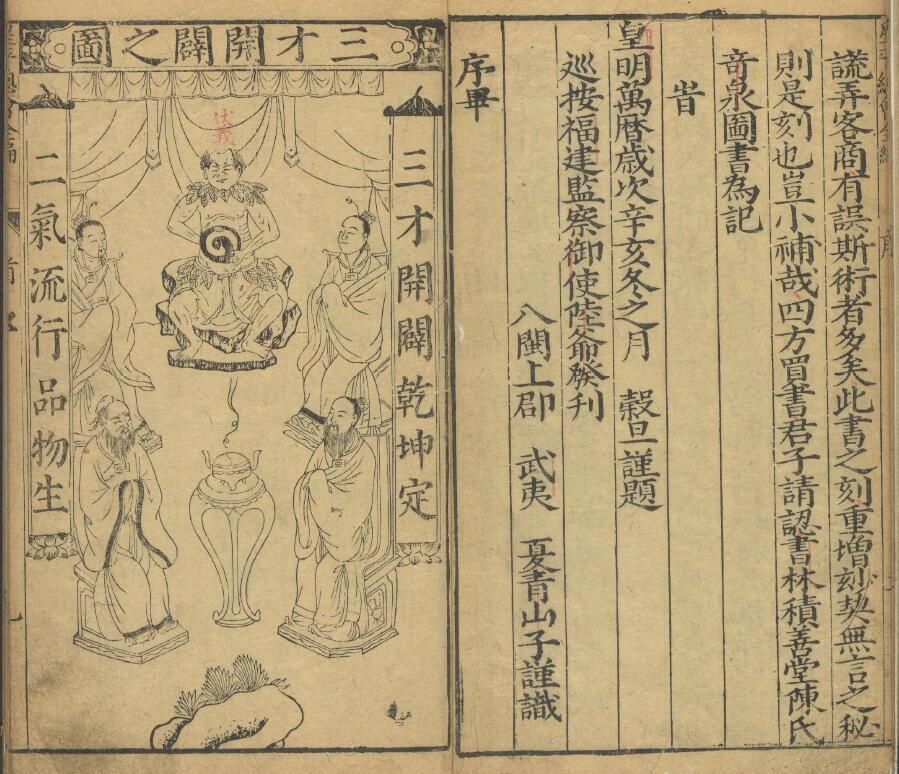 謊弄客商有誤斯術者多矣此書之刻重增妙契無言之秘
則是刻也豈小補哉四方買書君子請認書林積善堂陳氏
奇泉圖書為記
旹
皇明萬曆歲次辛亥冬之月 穀旦謹題
巡按福建監察御使陸爺發刋
八閩上郡 武夷 夏青山子謹識
序畢
三才開闢之圖
三才開闢乾坤定
伏羲
二氣流行品物生